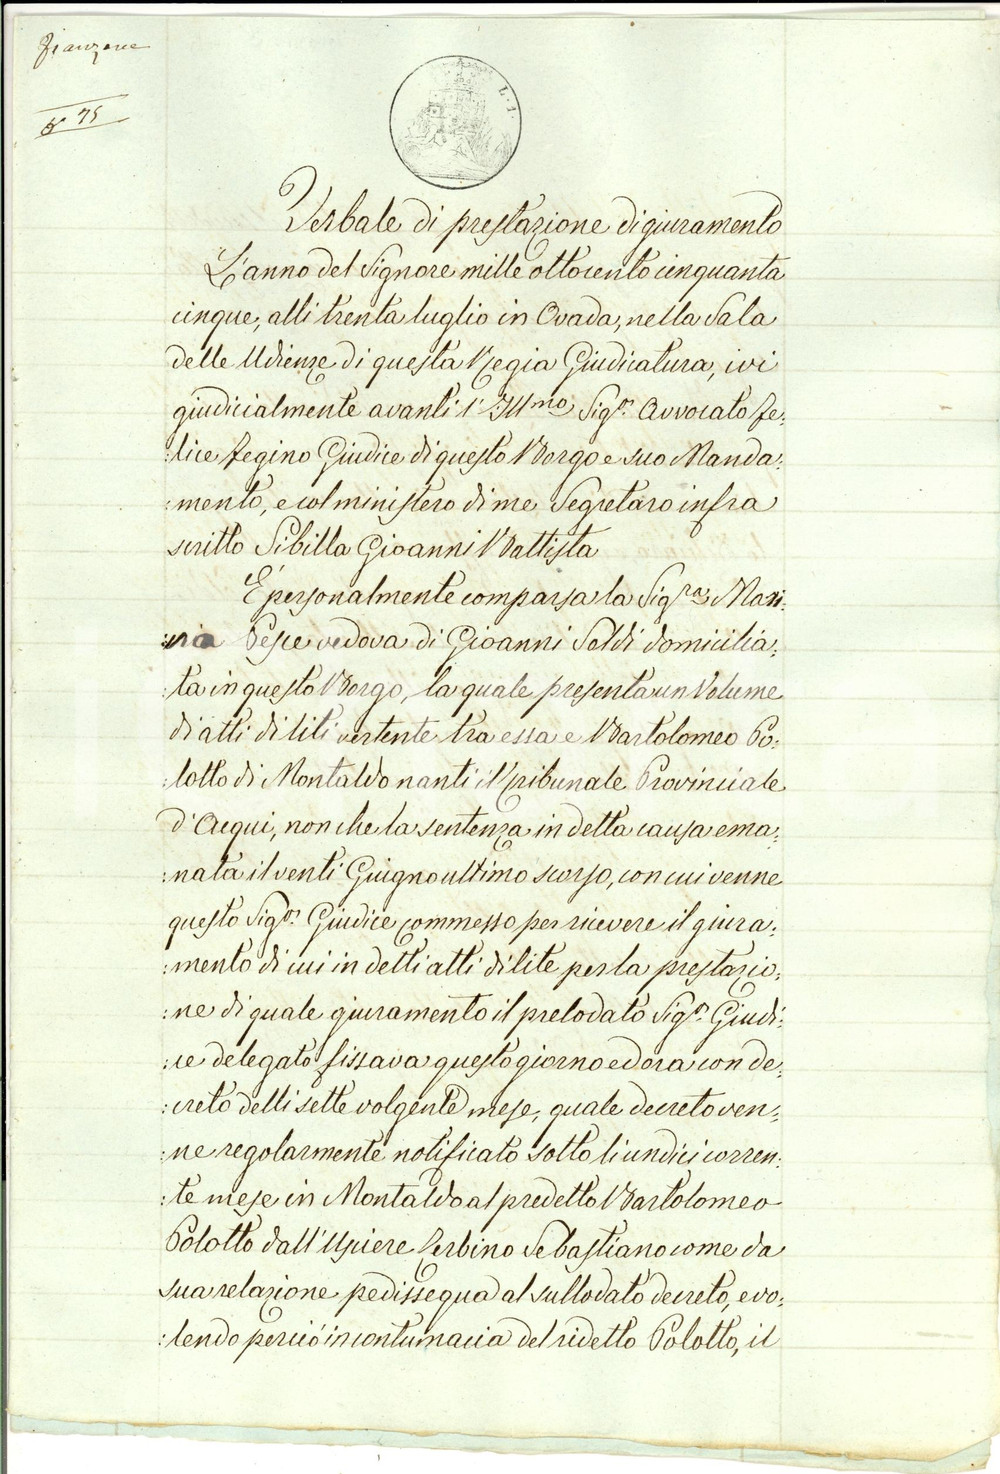 N° 75
L. 1
Verbale di prestazione di giuramento
L'anno del Signore mille ottocento cinquanta
cinque, alli trenta luglio in Ovada, nella Sala
delle Udienze di questa Regia Giudicatura, ivi
giudicialmente avanti l'Illmo. Sigr. Avvocato Fe:
:lice Fegino Giudice di questo Borgo e suo Manda:
:mento, e col ministero di me Segretaro infra
scritto Sibilla Gioanni Battista
È personalmente comparsa la Sigra. Mari:
Pesce vedova di Gioanni Soldi domicilia:
:ta in questo Borgo, la quale presenta un Volume
di atti di liti vertente tra essa e Bartolomeo Po:
:lotto di Montaldo nanti il Tribunale Provinciale
d'Acqui, non che la sentenza in detta causa ema:
:nata il venti Giugno ultimo scorso, con cui venne
questo Sigr. Giudice commesso per ricevere il giura:
:mento di cui in detti atti di lite per la prestazio:
:ne di quale giuramento il prelodato Sigr. Giudi:
:ce delegato fissava questo giorno ed ora con de:
:creto delli sette volgente mese, quale decreto ven:
:ne regolarmente notificato sotto li undici corren:
:te mese in Montaldo al predetto Bartolomeo
Polotto dall'Usciere Zerbino Sebastiano come da
sua relazione pedissequa al sullodato decreto, e vo:
:lendo perciò in contumacia del ridetto Polotto, il